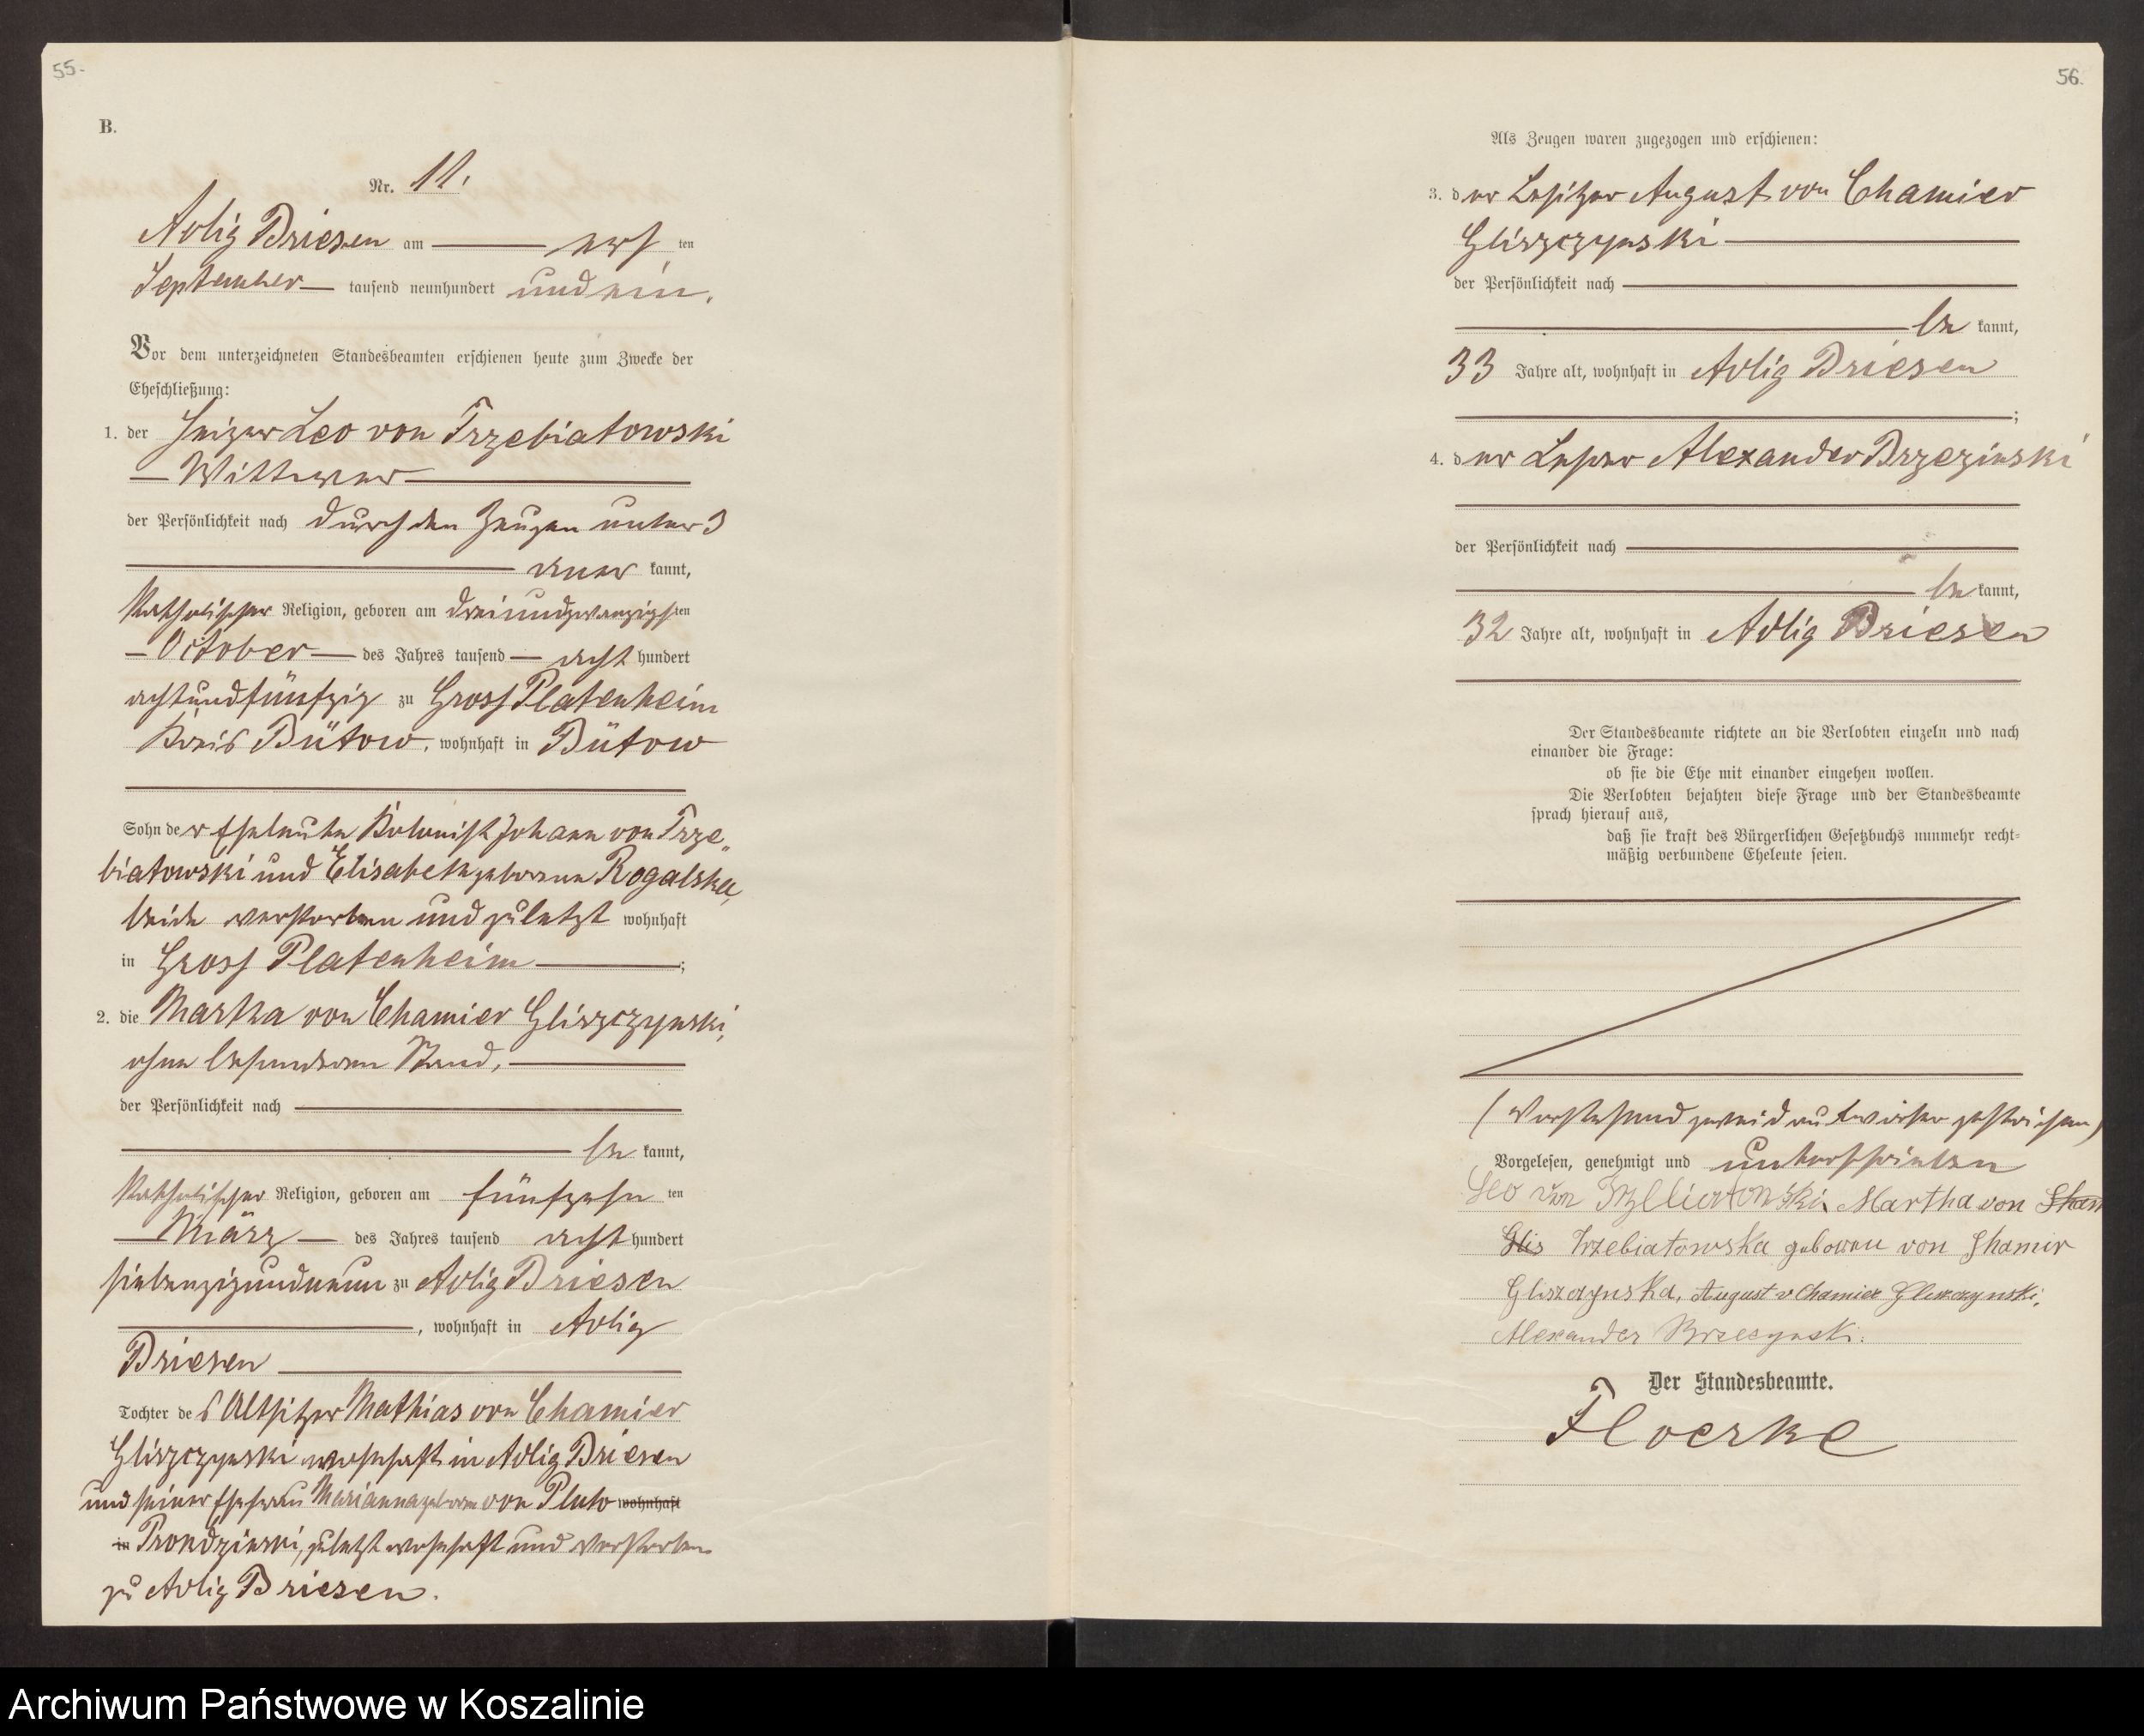 55.
B.
Nr. 11.
Adlig Briesen am ten
September tausend neunhundert und ein.
Vor dem unterzeichneten Standesbeamten erschienen heute zum Zwecke der
Eheschließung:
1. der Heizer Leo von Trzebiatowski
Wittwer
der Persönlichkeit nach durch den Zeugen unter 3
aner kannt,
katholischer Religion, geboren am dreiundzwanzigsten
October des Jahres tausend acht hundert
achtundfünfzig zu Gross Platenheim
Kreis Bütow, wohnhaft in Bütow
Sohn der Eheleute Kolonist Johann von Trze„
biatowski und Elisabeth geborene Rogalska,
beide verstorben und zuletzt wohnhaft
in Gross Platenheim;
2. die Martha von Chamier Gliszczynski,
ohne besonderen Stand,
der Persönlichkeit nach
be kannt,
katholischer Religion, geboren am fünfzehn ten
März des Jahres tausend acht hundert
siebenzigundneun zu Adlig Briesen
, wohnhaft in Adlig
Briesen
Tochter des Altsitzer Mathias von Chamier
Gliszczynski wohnhaft in Adlig Briesen
und seiner Ehefrau Marianna geboren von Pluto wohnhaft
in Prondzinski, zuletzt wohnhaft und verstorben
zu Adlig Briesen.
56.
Als Zeugen waren zugezogen und erschienen:
3. der Besitzer August von Chamier
Gliszczynski
der Persönlichkeit nach
be kannt,
33 Jahre alt, wohnhaft in Adlig Briesen
;
4. der Lehrer Alexander Brzezinski
der Persönlichkeit nach
be kannt,
32 Jahre alt, wohnhaft in Adlig Briesen
Der Standesbeamte richtete an die Verlobten einzeln und nach
einander die Frage:
ob sie die Ehe mit einander eingehen wollen.
Die Verlobten bejahten diese Frage und der Standesbeamte
sprach hierauf aus,
daß sie kraft des Bürgerlichen Gesetzbuchs nunmehr recht-
mäßig verbundene Eheleute seien.
(Vorstehend zwei Druckwörter gestrichen)
Vorgelesen, genehmigt und unterschrieben
Leo von Trzebiatowski, Martha von
Glis Trzebiatowska geboren von Shamir
Gliszczynska, August v Chamier Gliszczynski,
Alexander Brzezynski.
Der Standesbeamte.
Floerke
Archiwum Państwowe w Koszalinie